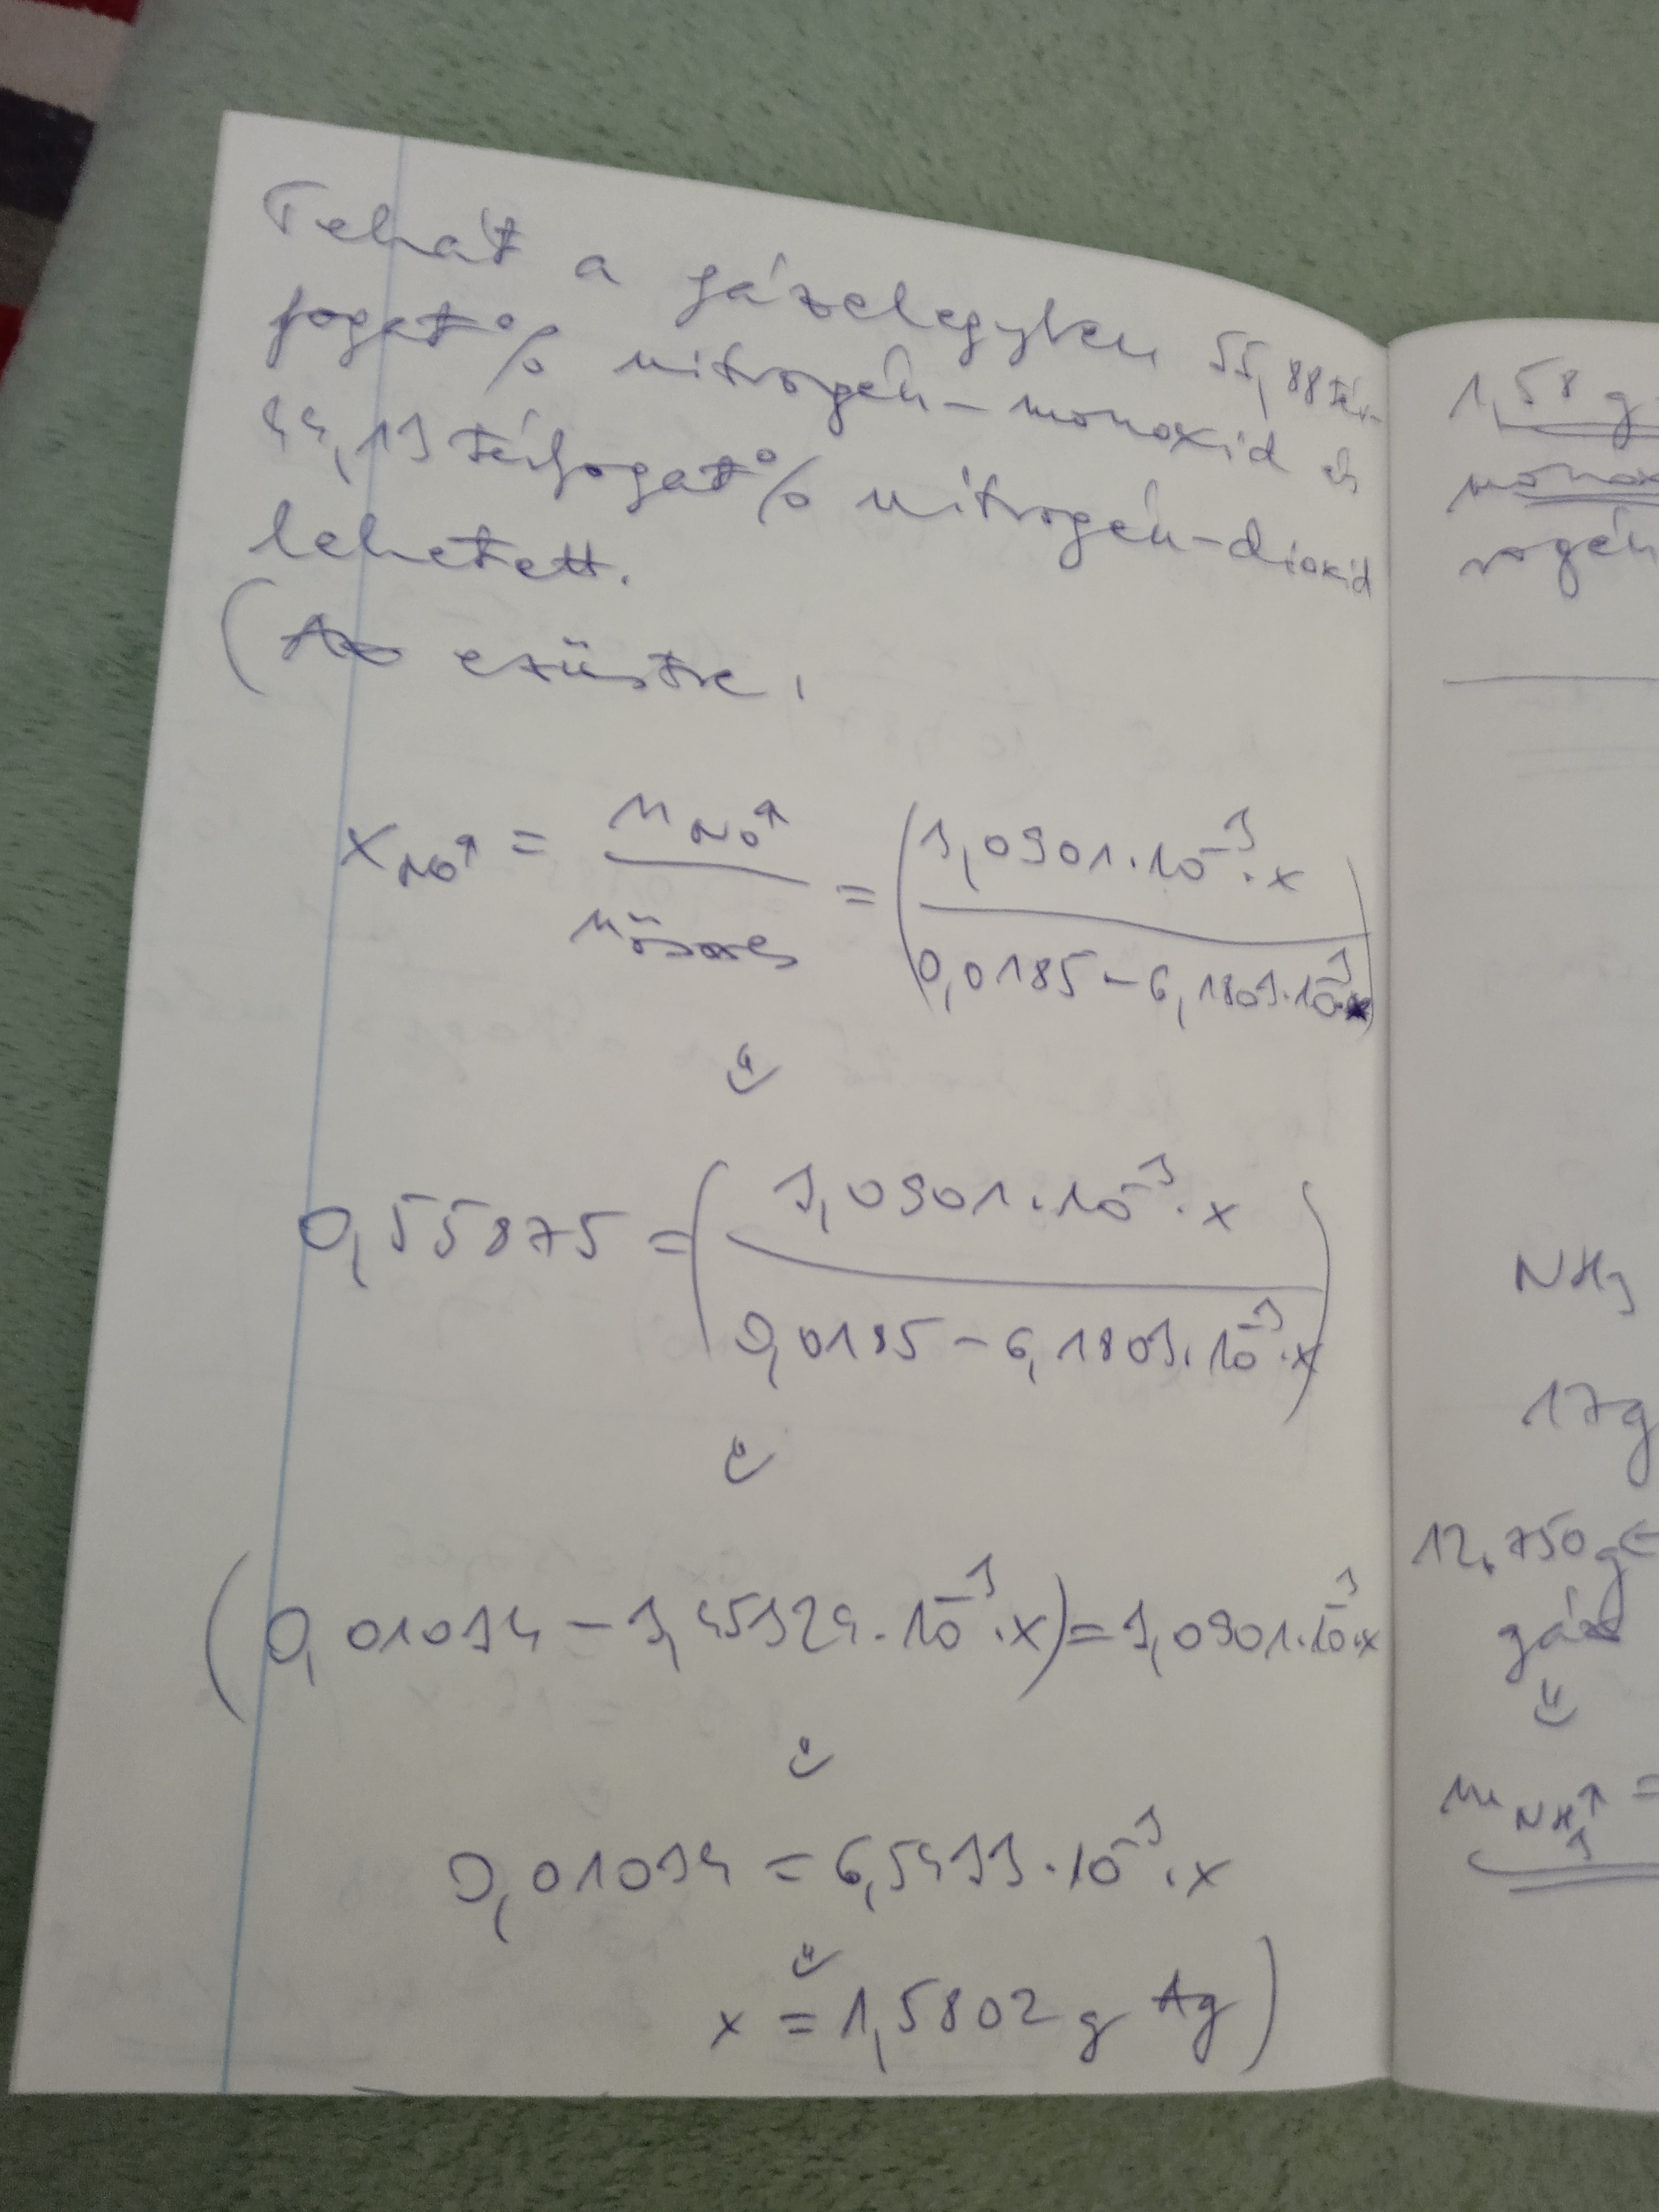 Tehát a gázelegyben 55,88 tér-
fogat% nitrogén-monoxid és
44,13 térfogat% nitrogén-dioxid
lehetett.
( Az ezüstre,
x NO↑ = n NO↑ / n összes = ( 3,0901·10⁻³·x / 0,0185 - 6,1803·10⁻³·x )
0,55875 = ( 3,0901·10⁻³·x / 0,0185 - 6,1803·10⁻³·x )
( 0,01034 - 3,45324·10⁻³·x ) = 3,0901·10⁻³·x
0,01034 = 6,5433·10⁻³·x
x = 1,5802 g Ag )
1,58 g
monox
rogén
NH₃
17g
12,750g
gáz
m NH₃↑ =